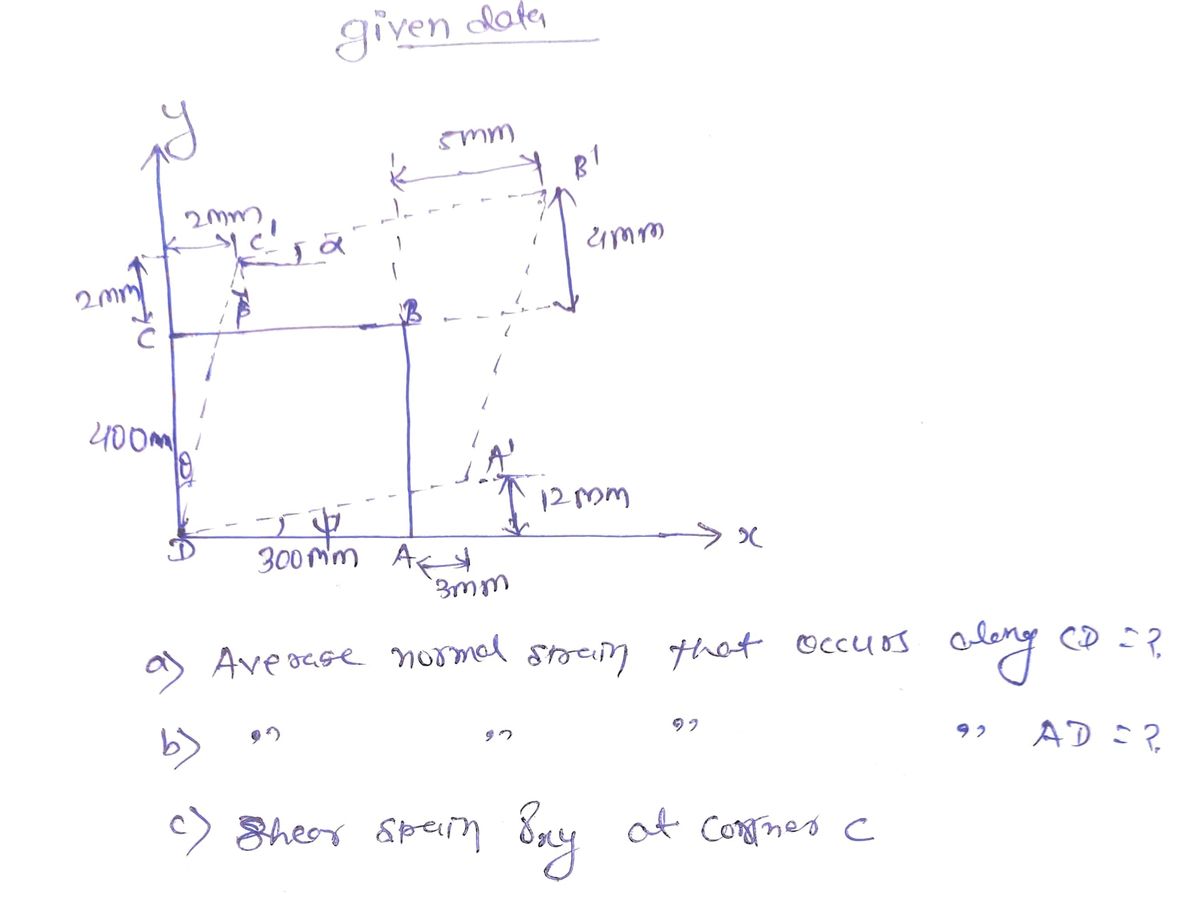 given data
y
5mm
B'
2mm
C'
α
4mm
2mm
β
B
C
400m
θ
A'
12mm
ψ
D
300mm
A
x
3mm
a) Average normal strain that occurs along CD = ?
b) ,, ,, ,, ,, AD = ?
c) Shear sprain γxy at corner C